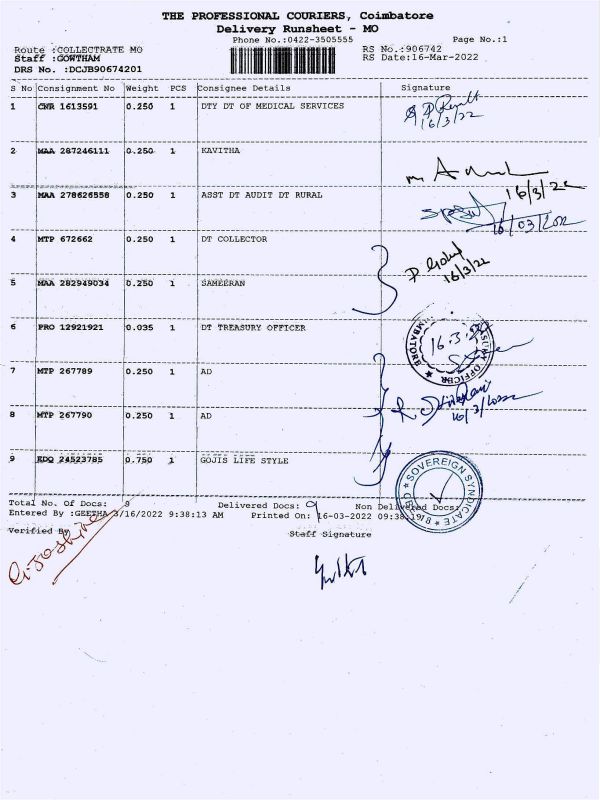 THE PROFESSIONAL COURIERS, Coimbatore
Delivery Runsheet - MO
Phone No.:0422-3505555 Page No.:1
Route :COLLECTRATE MO RS No.:906742
Staff :GOWTHAM RS Date:16-Mar-2022
DRS No. :DCJB90674201
S No Consignment No Weight PCS Consignee Details Signature
1 CNR 1613591 0.250 1 DTY DT OF MEDICAL SERVICES
16/3/22
2 MAA 287246111 0.250 1 KAVITHA
16/3/22
3 MAA 278626558 0.250 1 ASST DT AUDIT DT RURAL
16/03/2022
4 MTP 672662 0.250 1 DT COLLECTOR
16/3/22
5 MAA 282949034 0.250 1 SAMEERAN
6 PRO 12921921 0.035 1 DT TREASURY OFFICER
16.3.22
7 MTP 267789 0.250 1 AD
8 MTP 267790 0.250 1 AD
16/3/2022
9 KDQ 24523785 0.750 1 GOJIS LIFE STYLE
SOVEREIGN SYNDICATE
Total No. Of Docs: 9 Delivered Docs: 9 Non Delivered Docs:
Entered By :GEETHA 3/16/2022 9:38:13 AM Printed On: 16-03-2022 09:38:19
Verified By Staff Signature